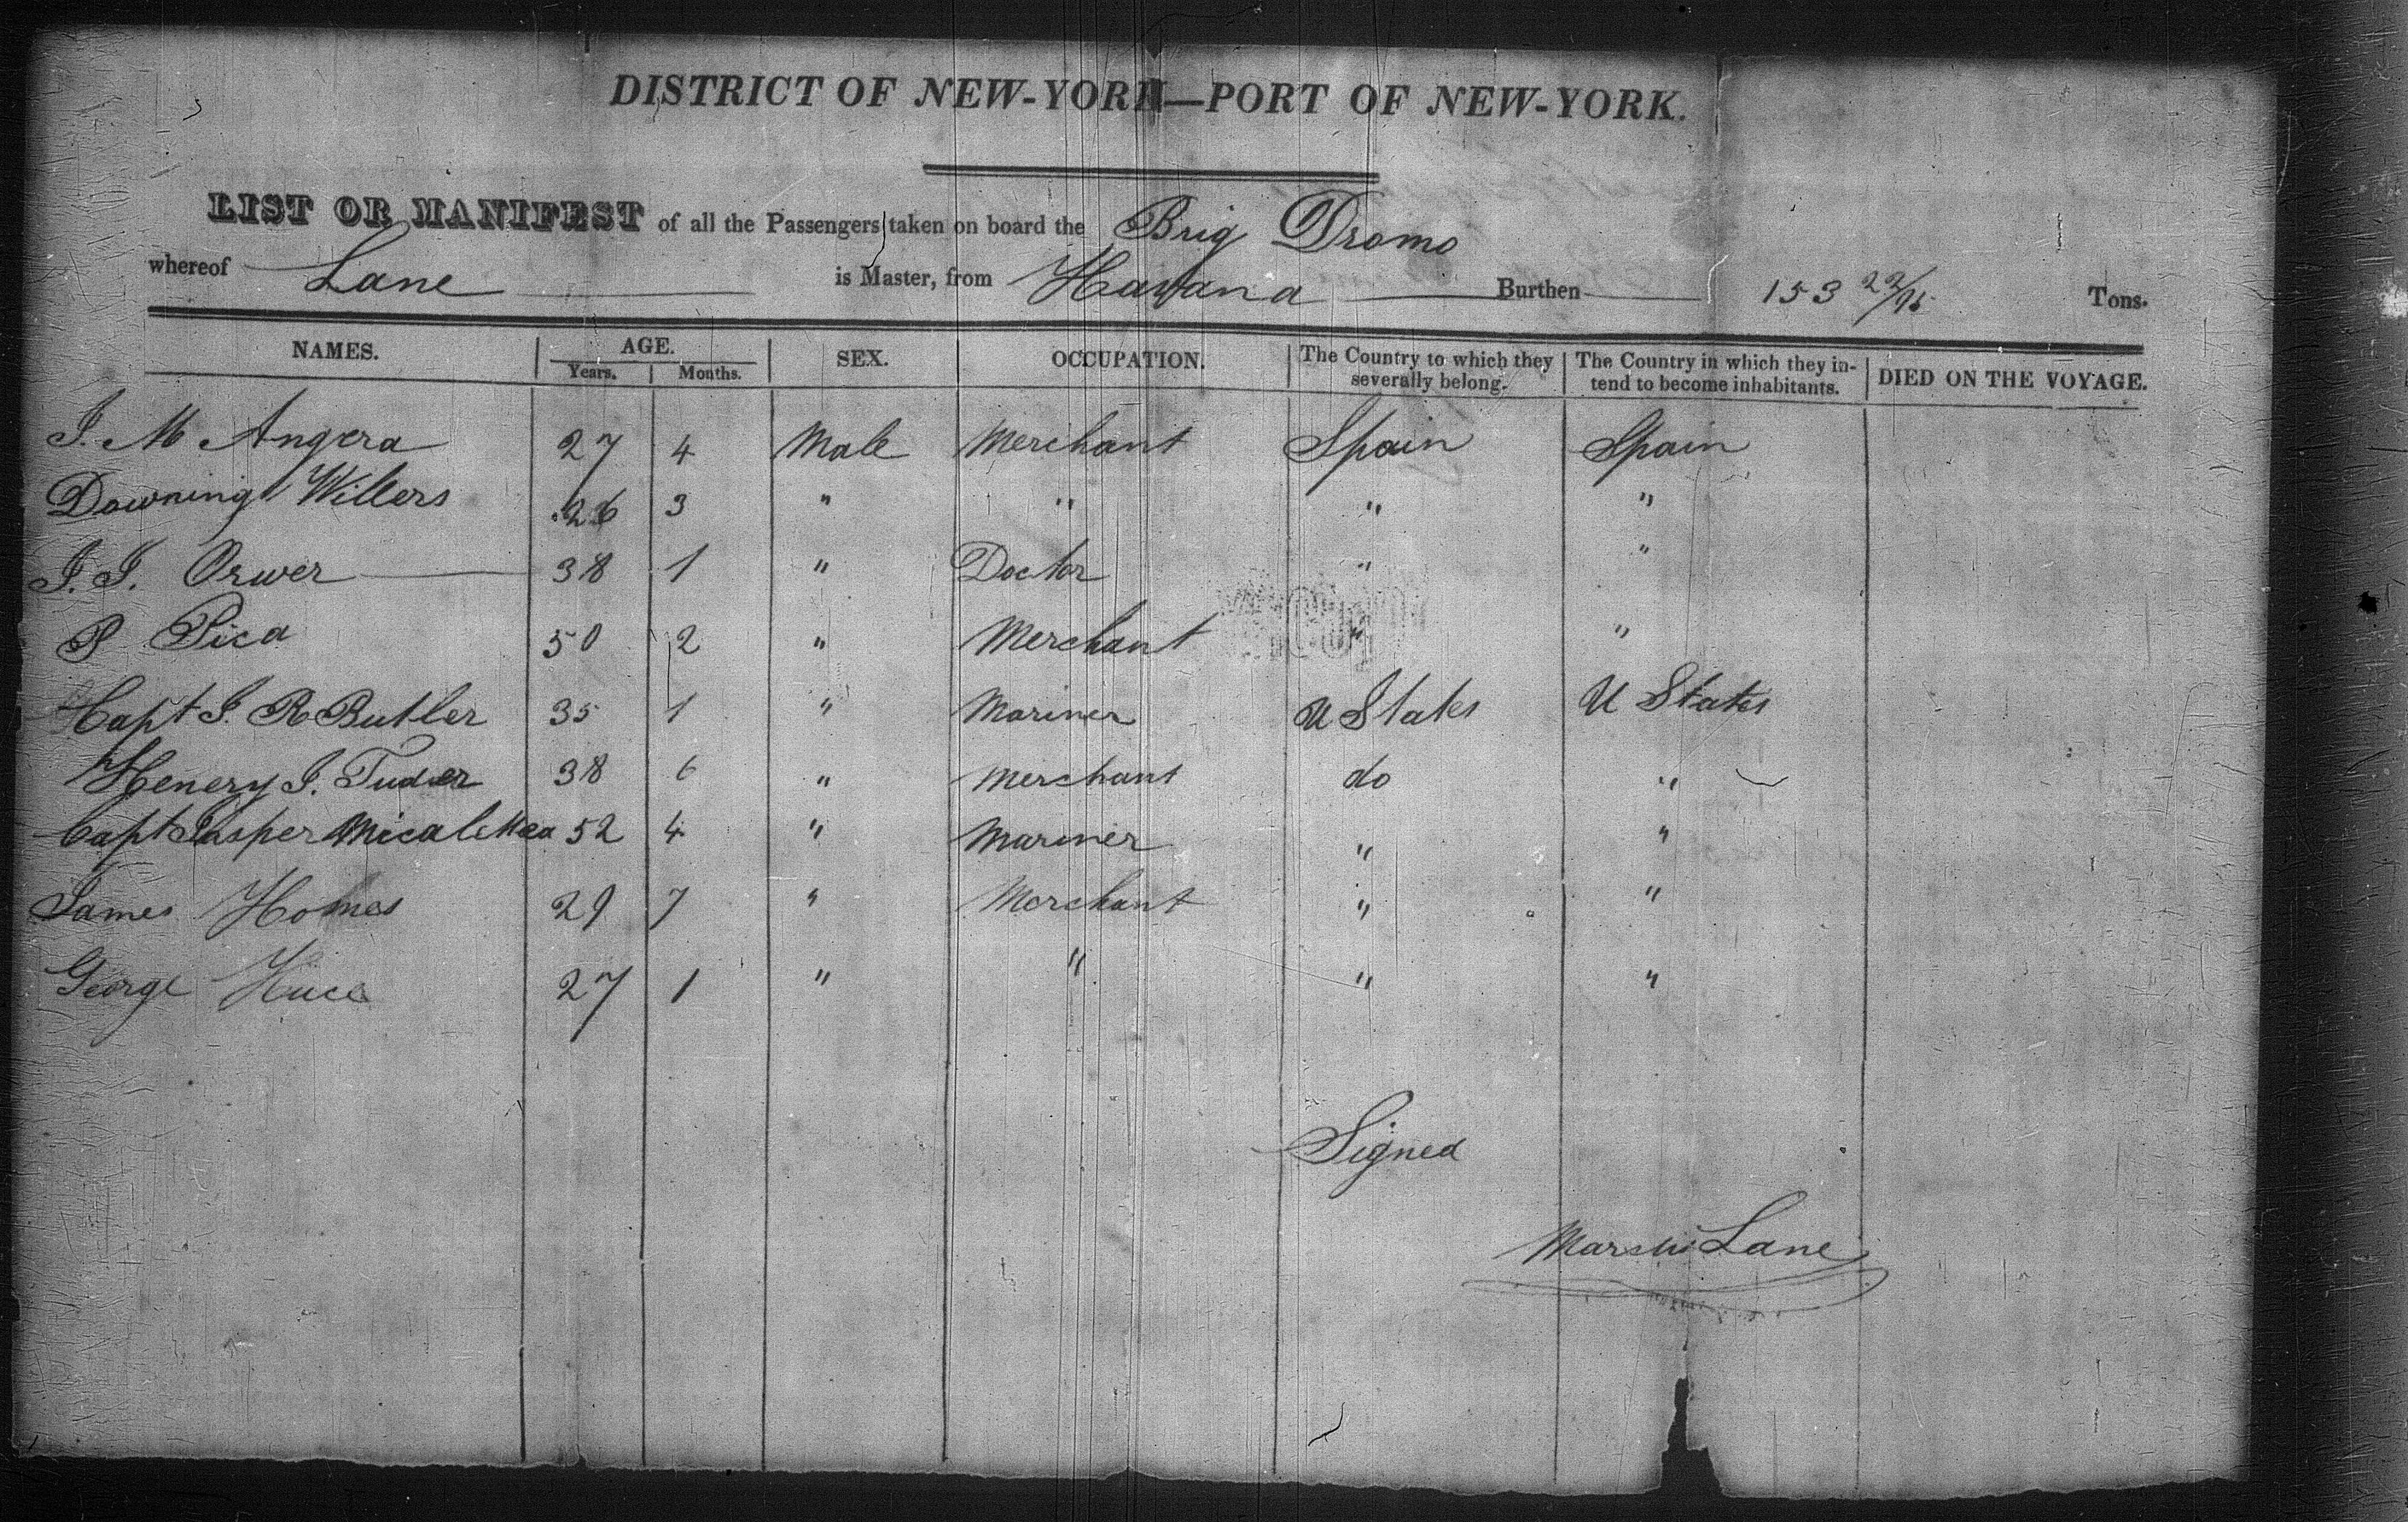 DISTRICT OF NEW-YORK—PORT OF NEW-YORK.
LIST OR MANIFEST of all the Passengers taken on board the Brig Dromo
whereof Lane is Master, from Havana Burthen 153 22/95 Tons.
NAMES. AGE. Years. Months. SEX. OCCUPATION. The Country to which they severally belong. The Country in which they intend to become inhabitants. DIED ON THE VOYAGE.
J. M Angera 27 4 Male Merchant Spain Spain
Downing Willers 26 3 " " " "
J. J. Orwer 38 1 " Doctor " "
P Pica 50 2 " Merchant " "
Capt J. R Butler 35 1 " Mariner U States U States
Henery J. Tudor 38 6 " Merchant do "
Capt Jasper 52 4 " Mariner " "
James Holmes 29 7 " Merchant " "
George 27 1 " " " "
Signed
Lane